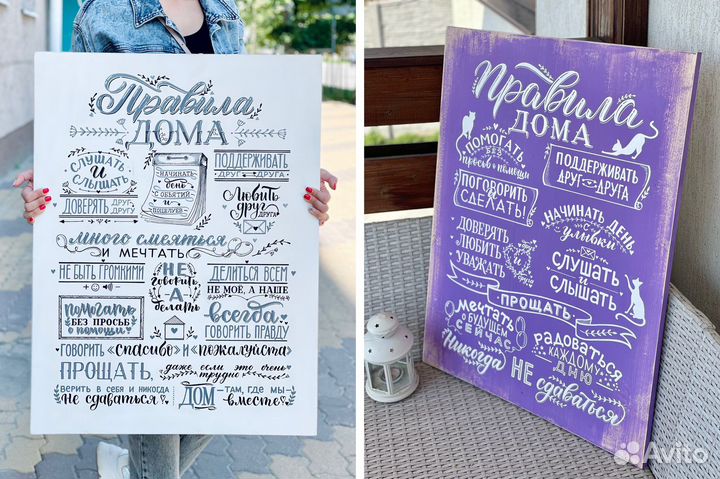 Правила
ДОМА
СЛУШАТЬ
И
СЛЫШАТЬ
ДОВЕРЯТЬ ДРУГ ДРУГУ
НАЧИНАТЬ
ДЕНЬ
С ОБЪЯТИЙ
И
ПОЦЕЛУЕВ
ПОДДЕРЖИВАТЬ
ДРУГ ДРУГА
Любить
друг
ДРУГА
много смеяться
И МЕЧТАТЬ
НЕ БЫТЬ ГРОМКИМИ
НЕ
говорить
А
делать
ДЕЛИТЬСЯ ВСЕМ
НЕ МОЕ, А НАШЕ
помогать
БЕЗ ПРОСЬБ
о помощи
всегда
ГОВОРИТЬ ПРАВДУ
ГОВОРИТЬ «спасибо» и «пожалуйста»
ПРОЩАТЬ, даже если это очень трудно
ВЕРИТЬ В СЕБЯ И НИКОГДА
Не сдаваться
ДОМ – ТАМ, ГДЕ МЫ
вместе
Правила
ДОМА
ПОМОГАТЬ
БЕЗ
просьб о помощи
ПОДДЕРЖИВАТЬ
ДРУГ ДРУГА
ПОГОВОРИТЬ
СДЕЛАТЬ!
НАЧИНАТЬ ДЕНЬ
с
улыбки
ДОВЕРЯТЬ
ЛЮБИТЬ
УВАЖАТЬ
СЛУШАТЬ
и
СЛЫШАТЬ
ПРОЩАТЬ
мечтать
О БУДУЩЕМ
СЕЙЧАС
РАДОВАТЬСЯ
КАЖДОМУ
ДНЮ
Никогда НЕ сдаваться
Avito